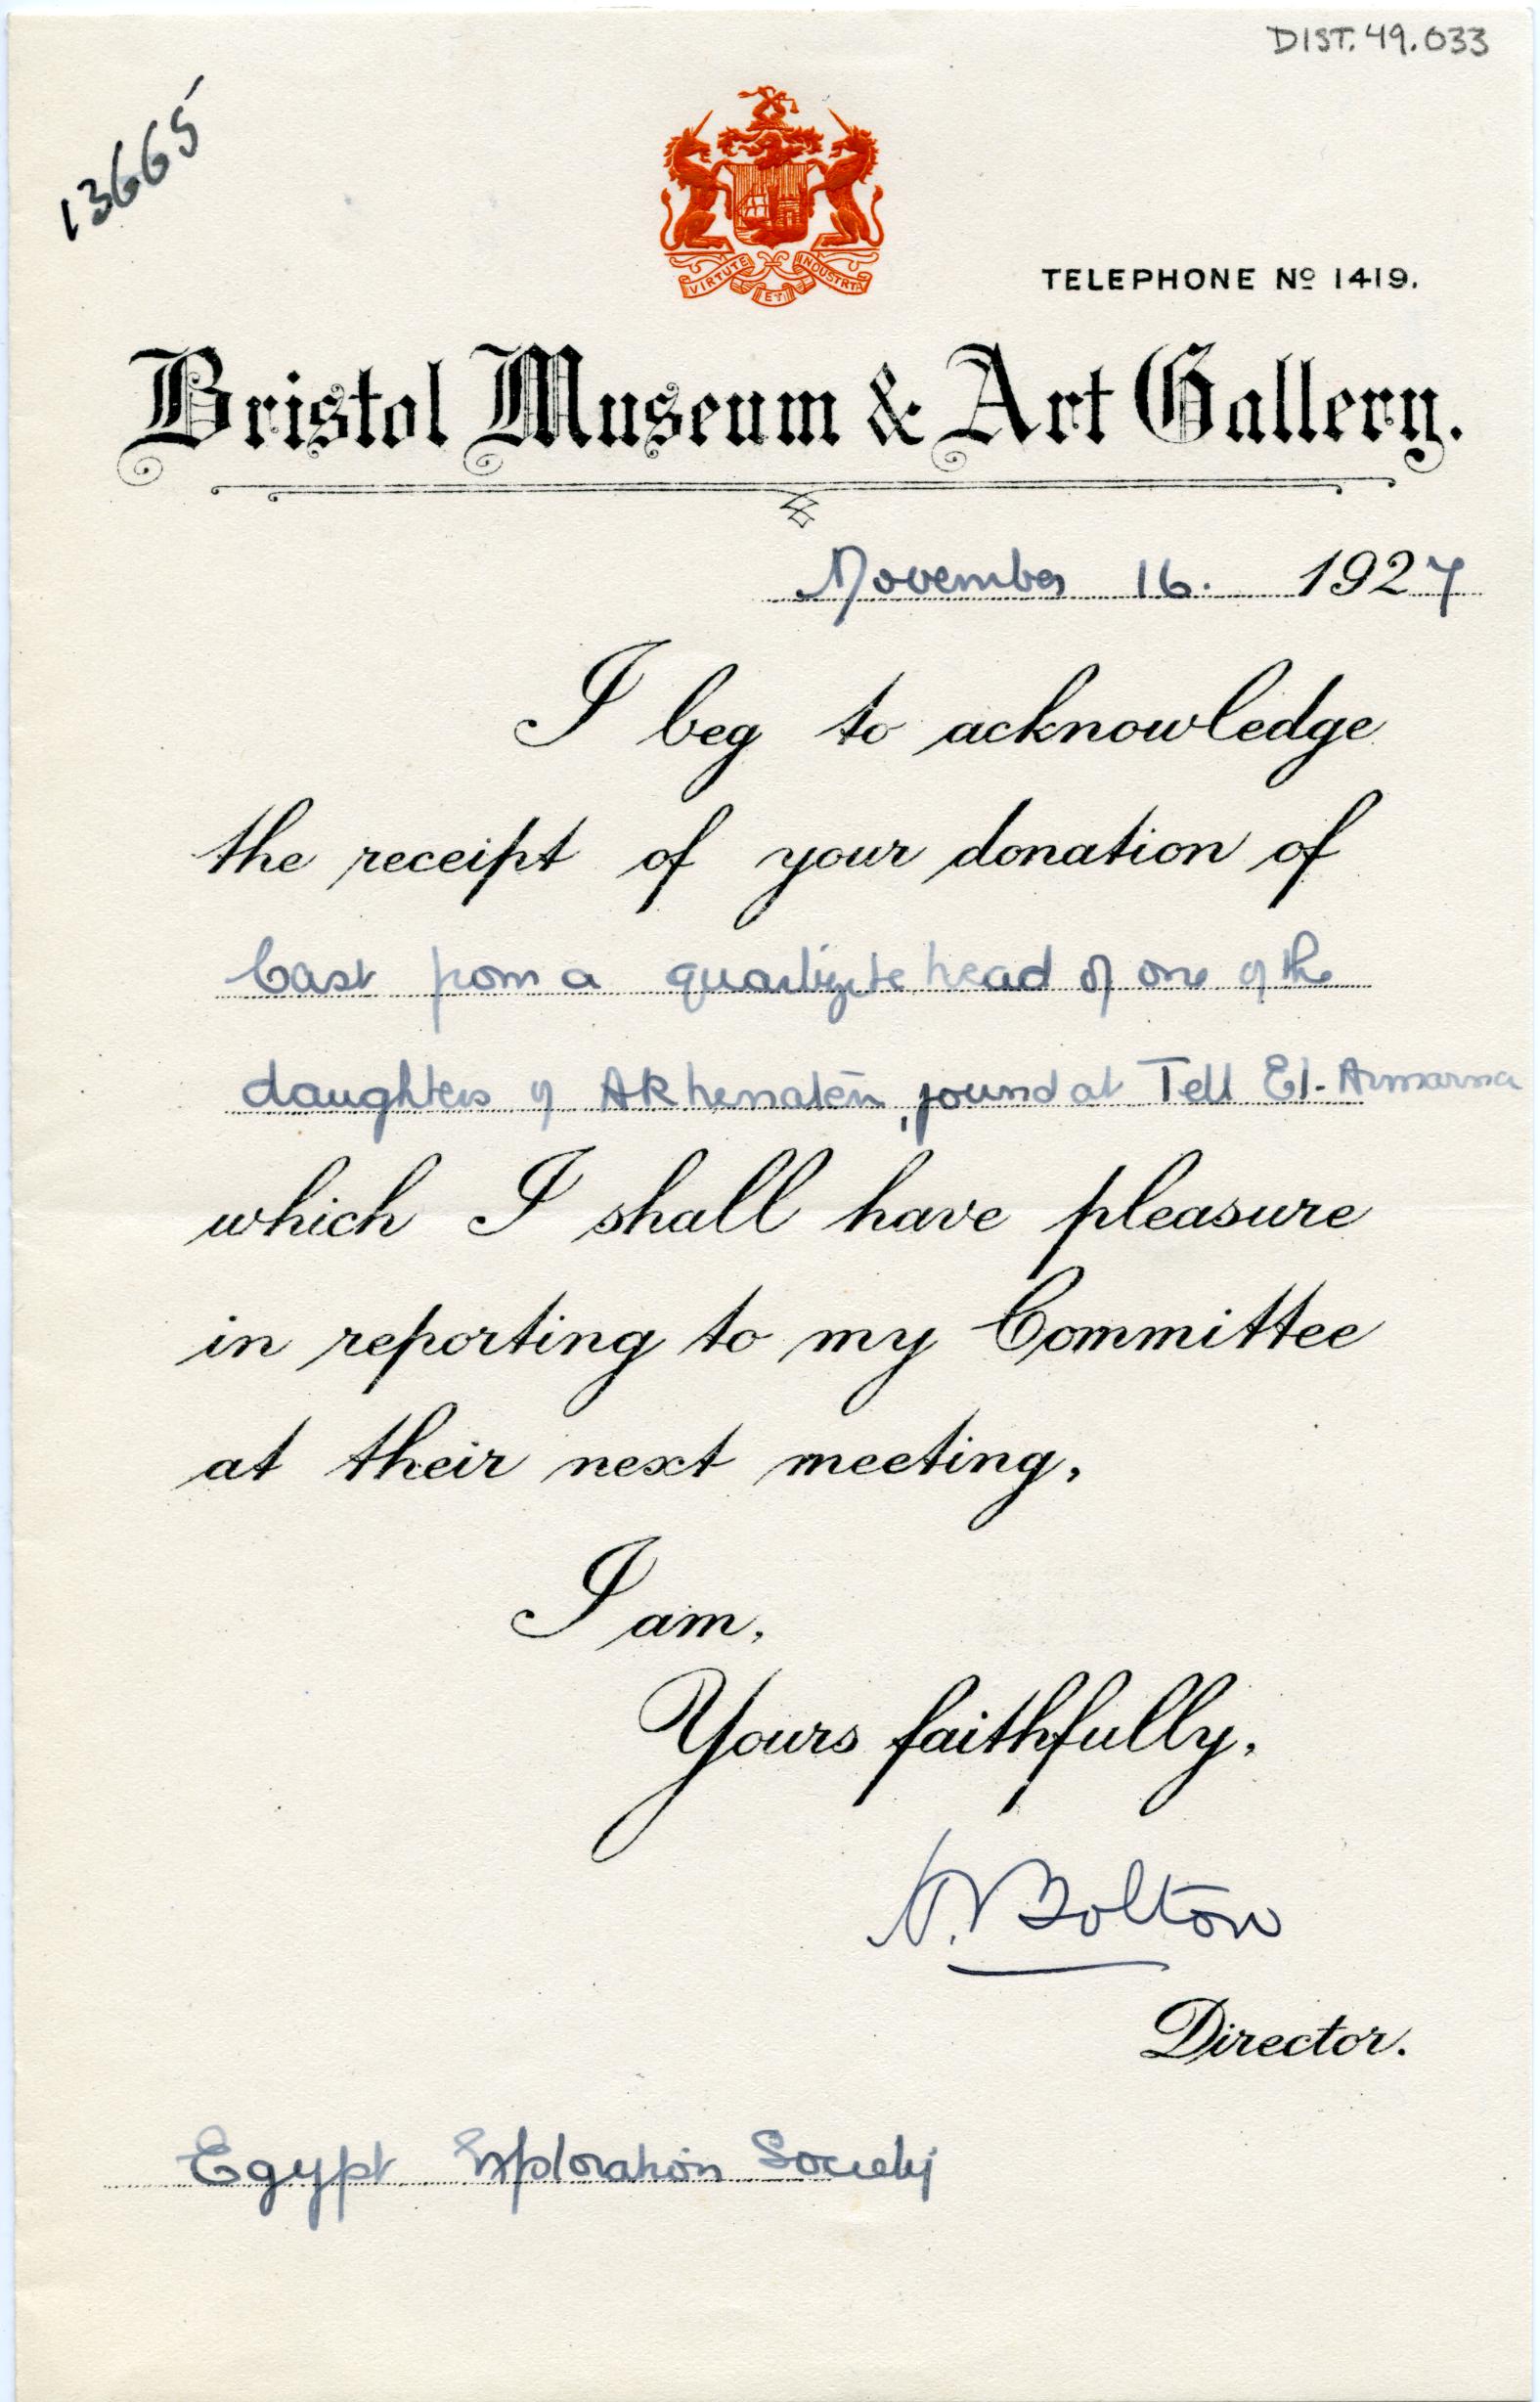 DIST. 49.033
13665
VIRTUTE ET INDUSTRIA
TELEPHONE No 1419.
Bristol Museum & Art Gallery.
November 16. 1927
I beg to acknowledge
the receipt of your donation of
Cast from a quartzite head of one of the
daughters of Akhenatēn, found at Tell El-Armarna
which I shall have pleasure
in reporting to my Committee
at their next meeting,
I am,
Yours faithfully,
H. Bolton
Director.
Egypt Exploration Society